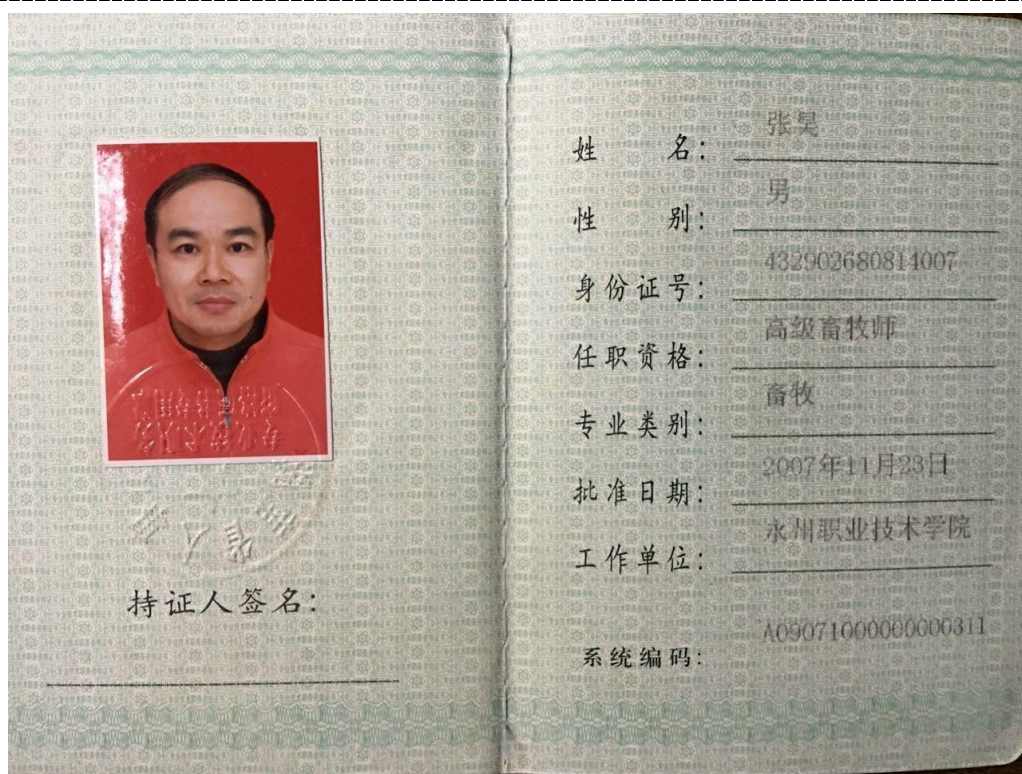 持证人签名：
姓名： 张昊
性别： 男
身份证号： 432902680814007
任职资格： 高级畜牧师
专业类别： 畜牧
批准日期： 2007年11月23日
工作单位： 永州职业技术学院
系统编码： A09071000000000311